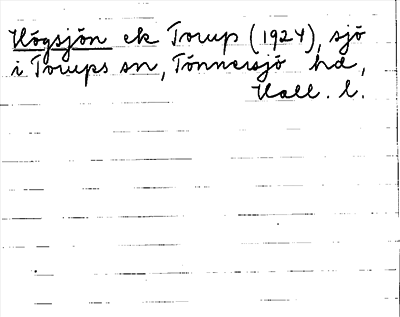 Högsjön ek Torup (1924), sjö
i Torups sn, Tönnersjö hd,
Hall. l.